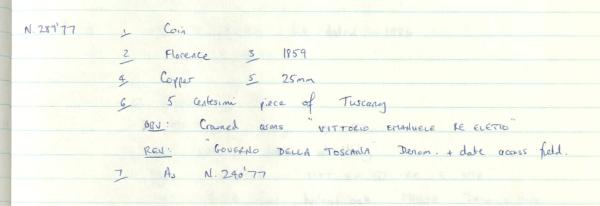 N.287'77 1 Coin
2 Florence 3 1859
4 Copper 5 25mm
6 5 Centesimi piece of Tuscany
OBV: Crowned arms "VITTORIO EMANUELE RE ELETTO"
REV: "GOVERNO DELLA TOSCANA" Denom. + date across field.
7 As N.240'77